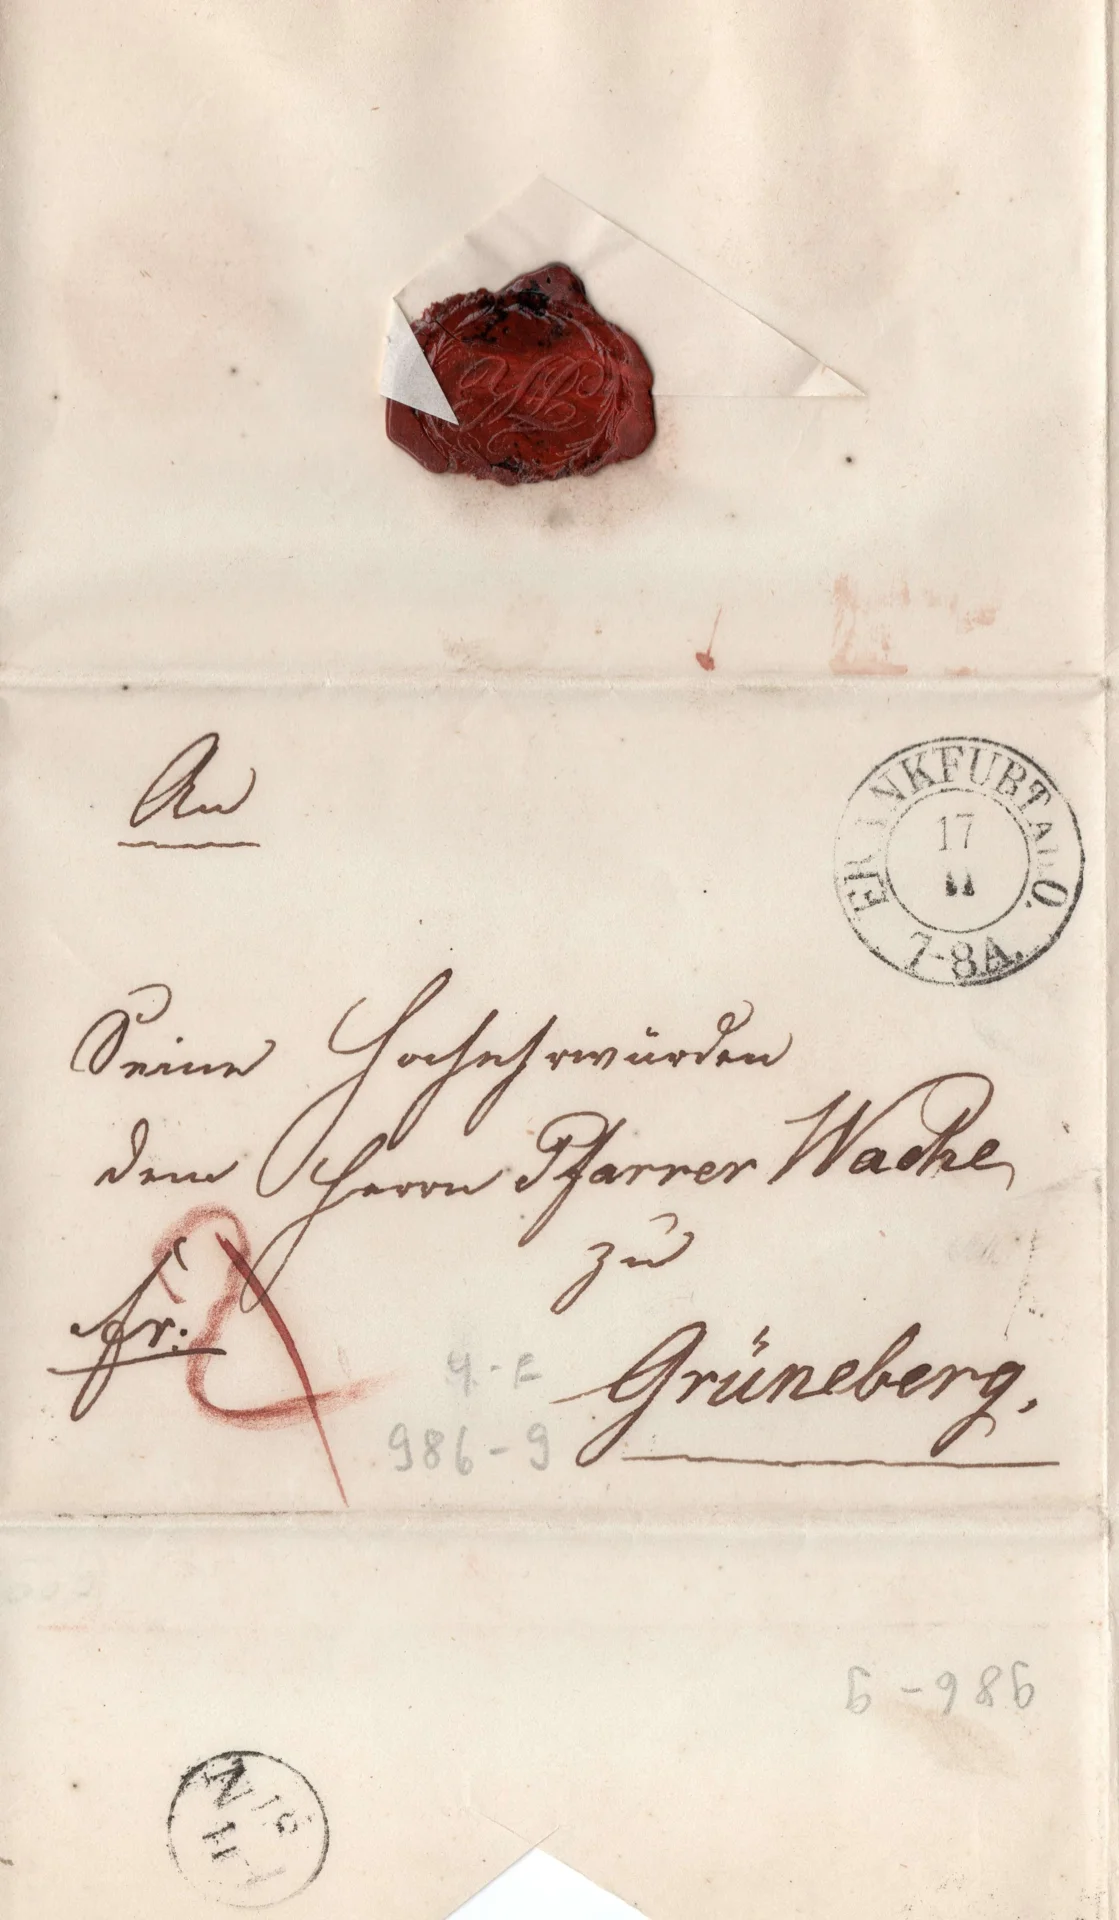 An
FRANKFURT A. O.
17
11
7-8 A.
Seine Hochehrwürden
dem Herrn Pfarrer Wache
zu
fr: 2
Grüneberg.
986-9
986-9
N
18
11